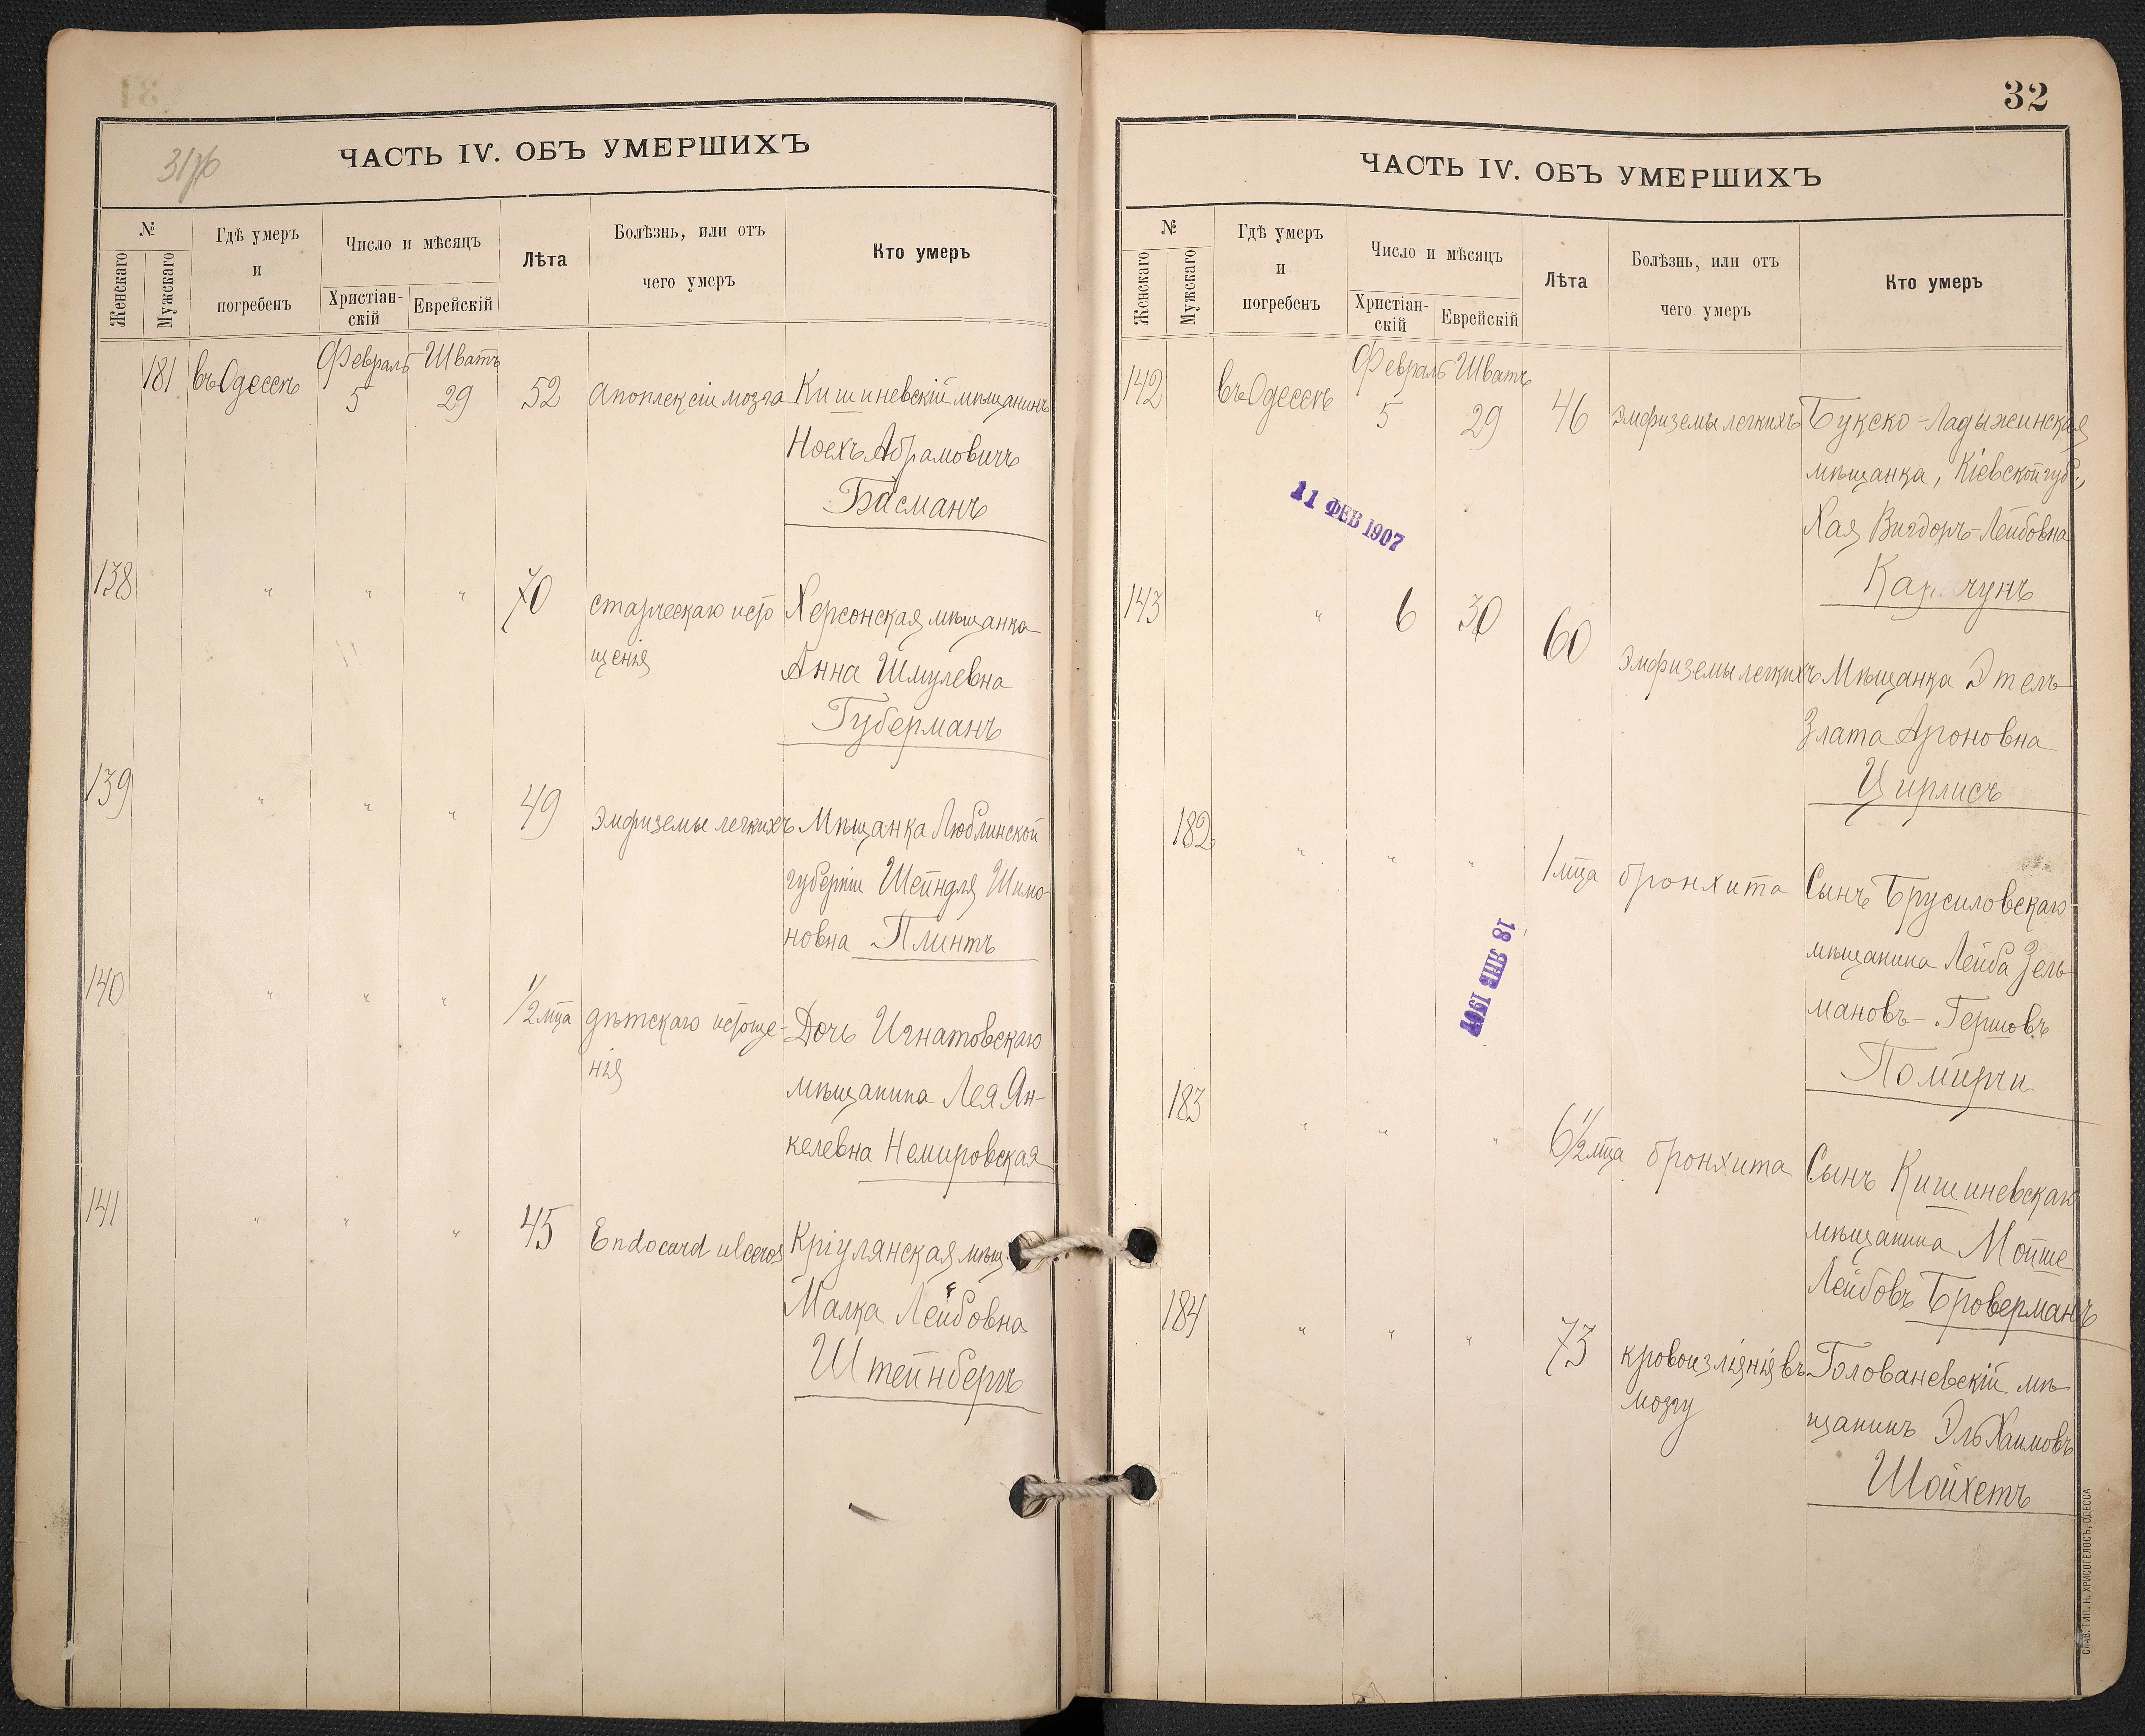 31
31об
ЧАСТЬ IV. ОБЪ УМЕРШИХЪ
№
Женскаго
Мужскаго
Гдѣ умеръ
и
погребенъ
Число и мѣсяцъ
Христіан-
скій
Еврейскій
Лѣта
Болѣзнь, или отъ
чего умеръ
Кто умеръ
181 въ Одессѣ Февраль Шватъ
5 29 52 апоплексіи мозга Кишиневскій мѣщанинъ
Ноехъ Абрамовичъ
Басманъ
138 " " " 70 старческаго исто Херсонская мѣщанка
щенія Анна Шмулевна
Губерманъ
139 " " " 49 эмфиземы легкихъ Мѣщанка Люблинской
губерніи Шейндля Шимо-
новна Плинтъ
140 " " " 1/2 мца дѣтскаго истоще- Дочь Игнатовскаго
нія мѣщанина Лея Ян-
келевна Немировская
141 " " " 45 Endocard ulceros Кріулянская мѣщ
Малка Лейбовна
Штейнбергъ
32
ЧАСТЬ IV. ОБЪ УМЕРШИХЪ
№
Женскаго
Мужскаго
Гдѣ умеръ
и
погребенъ
Число и мѣсяцъ
Христіан-
скій
Еврейскій
Лѣта
Болѣзнь, или отъ
чего умеръ
Кто умеръ
142 въ Одессѣ Февраль Шватъ
5 29 46 эмфиземы легкихъ Букско-Ладыжинская
мѣщанка, Кіевской губ.,
Хая Вигдоръ-Лейбовна
11 ФЕВ 1907
143 " 6 30 60 эмфиземы легкихъ Мѣщанка Этель-
Злата Ароновна
Цирлисъ
182 " " " 1 мца бронхита Сынъ Брусиловскаго
мѣщанина Лейба Зель-
мановъ-Гершовъ
Помирчи
18 ЯНВ 1907
183 " " " 6 1/2 мца бронхита Сынъ Кишиневскаго
мѣщанина Мойше
Лейбовъ Броверманъ
184 " " " 73 кровоизліянія въ Голованевскій мѣ-
мозгу щанинъ Эль Хаимовъ
Шойхетъ
СЛАВ. ТИП. Н. ХРИСОГЕЛОСЪ, ОДЕССА